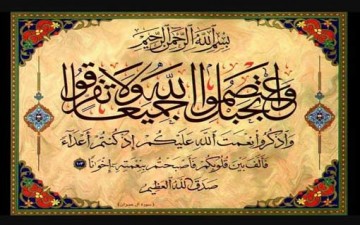 بسم الله الرحمن الرحيم
واعتصموا بحبل الله جميعا ولا تفرقوا
واذكروا نعمت الله عليكم إذ كنتم أعداء
فألف بين قلوبكم فأصبحتم بنعمته إخونا
صدق الله العظيم